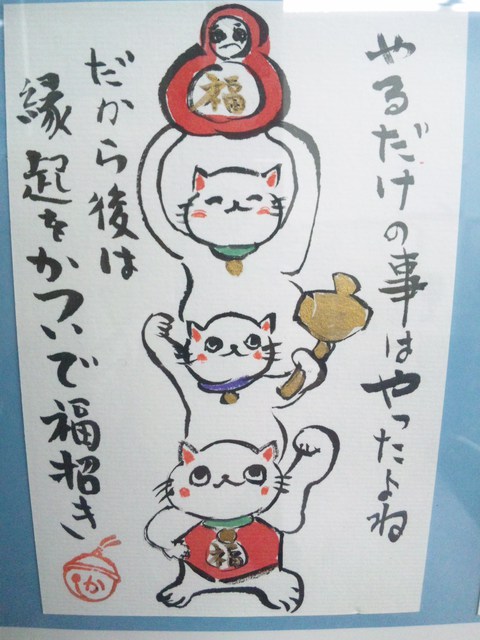 やるだけの事はやったよね
だから後は
縁起をかついで福招き
福
福
か